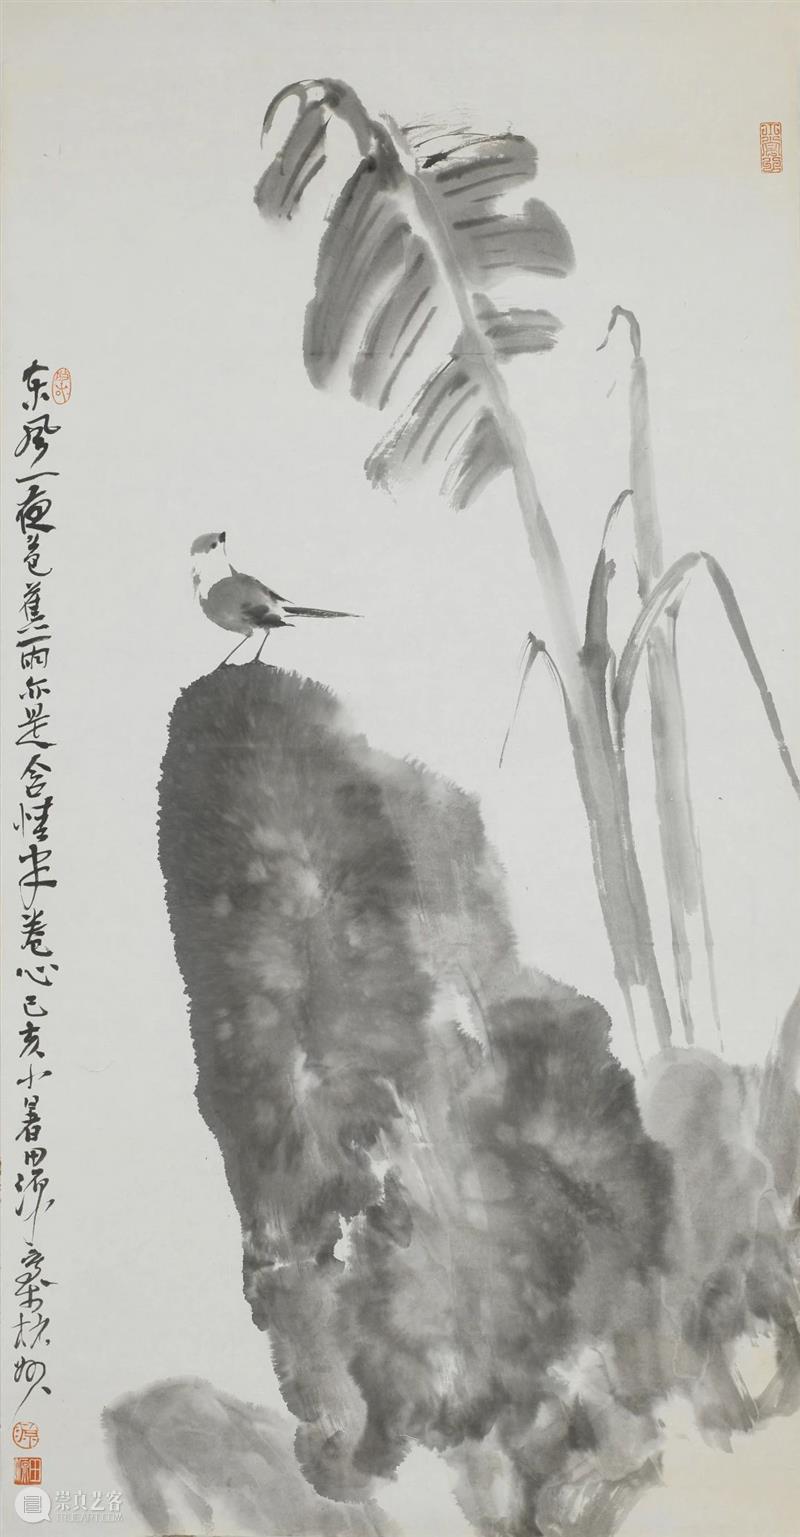 东风一夜芭蕉雨亦是含情半卷心己亥小暑田源
崇真艺客